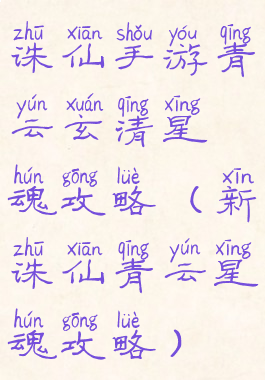 zhū xiān shǒu yóu qīng
诛仙手游青
yún xuán qīng xīng
云玄清星
hún gōng lüè xīn
魂攻略（新
zhū xiān qīng yún xīng
诛仙青云星
hún gōng lüè
魂攻略）